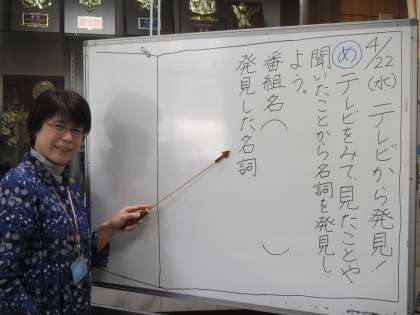 4/22(水) テレビから発見!
め テレビをみて、見たことや
聞いたことから名詞を発見し
よう。
番組名( )
発見した名詞